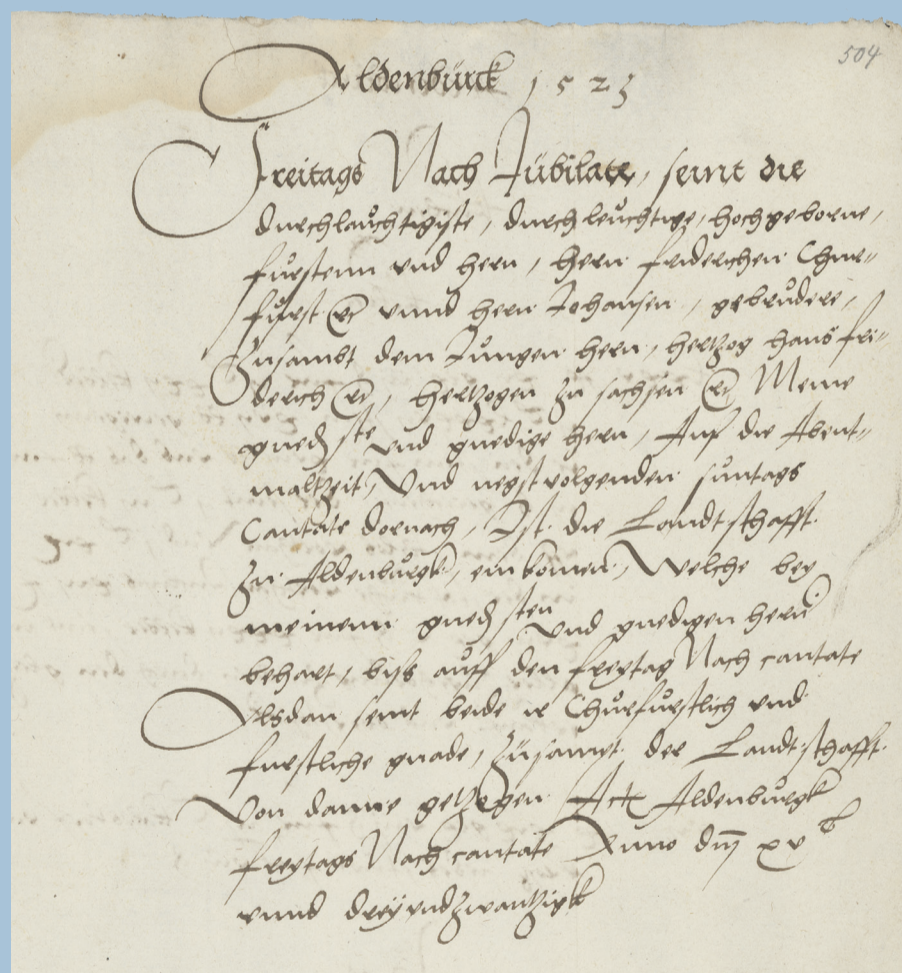 504
Aldenburck 1523
Freitags Nach Jubilate, seint die
durchlauchtigiste, durchleuchtige, hochgeborne,
furstenn vnd hern, hern friderichen Chur-
furst ꝛc vnnd hern Johansen, gebrudere,
Zusambt dem Jungen hern, hertzog hans fri-
derich ꝛc, hertzogen zu sachssen ꝛc Meine
gnedste vnd gnedige hern, Auf die Abent-
maltzeit, Vnd negstvolgenden suntags
Cantate dornach, Ist die Landtschafft
Zu Aldenburgk, einkomen, Welche bey
meinenn gnedsten vnd gnedigen hern
behart, biss auff den freytag Nach cantate
Alsdan seint beide ir Churfurstlich vnd
furstliche gnade, Zusampt der Landtschafft
Von danne getzogen Act Aldenburgk
freytags Nach cantate Anno dm̄ xvᶜ
vnnd dreyvndzwantzigk